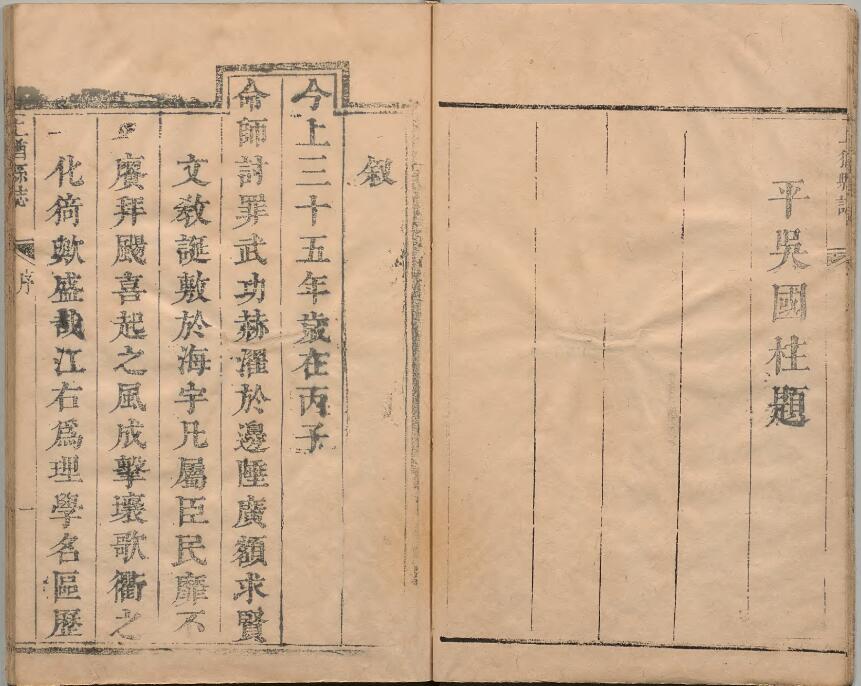 平吳國柱題
叙
今上三十五年歲在丙子
命師討罪武功赫濯於邊陲廣額求賢
文敎誕敷於海宇凡屬臣民靡不
賡拜颺喜起之風成擊壤歌衢之
化猗歟盛哉江右爲理學名區歷
猶縣志
序
一